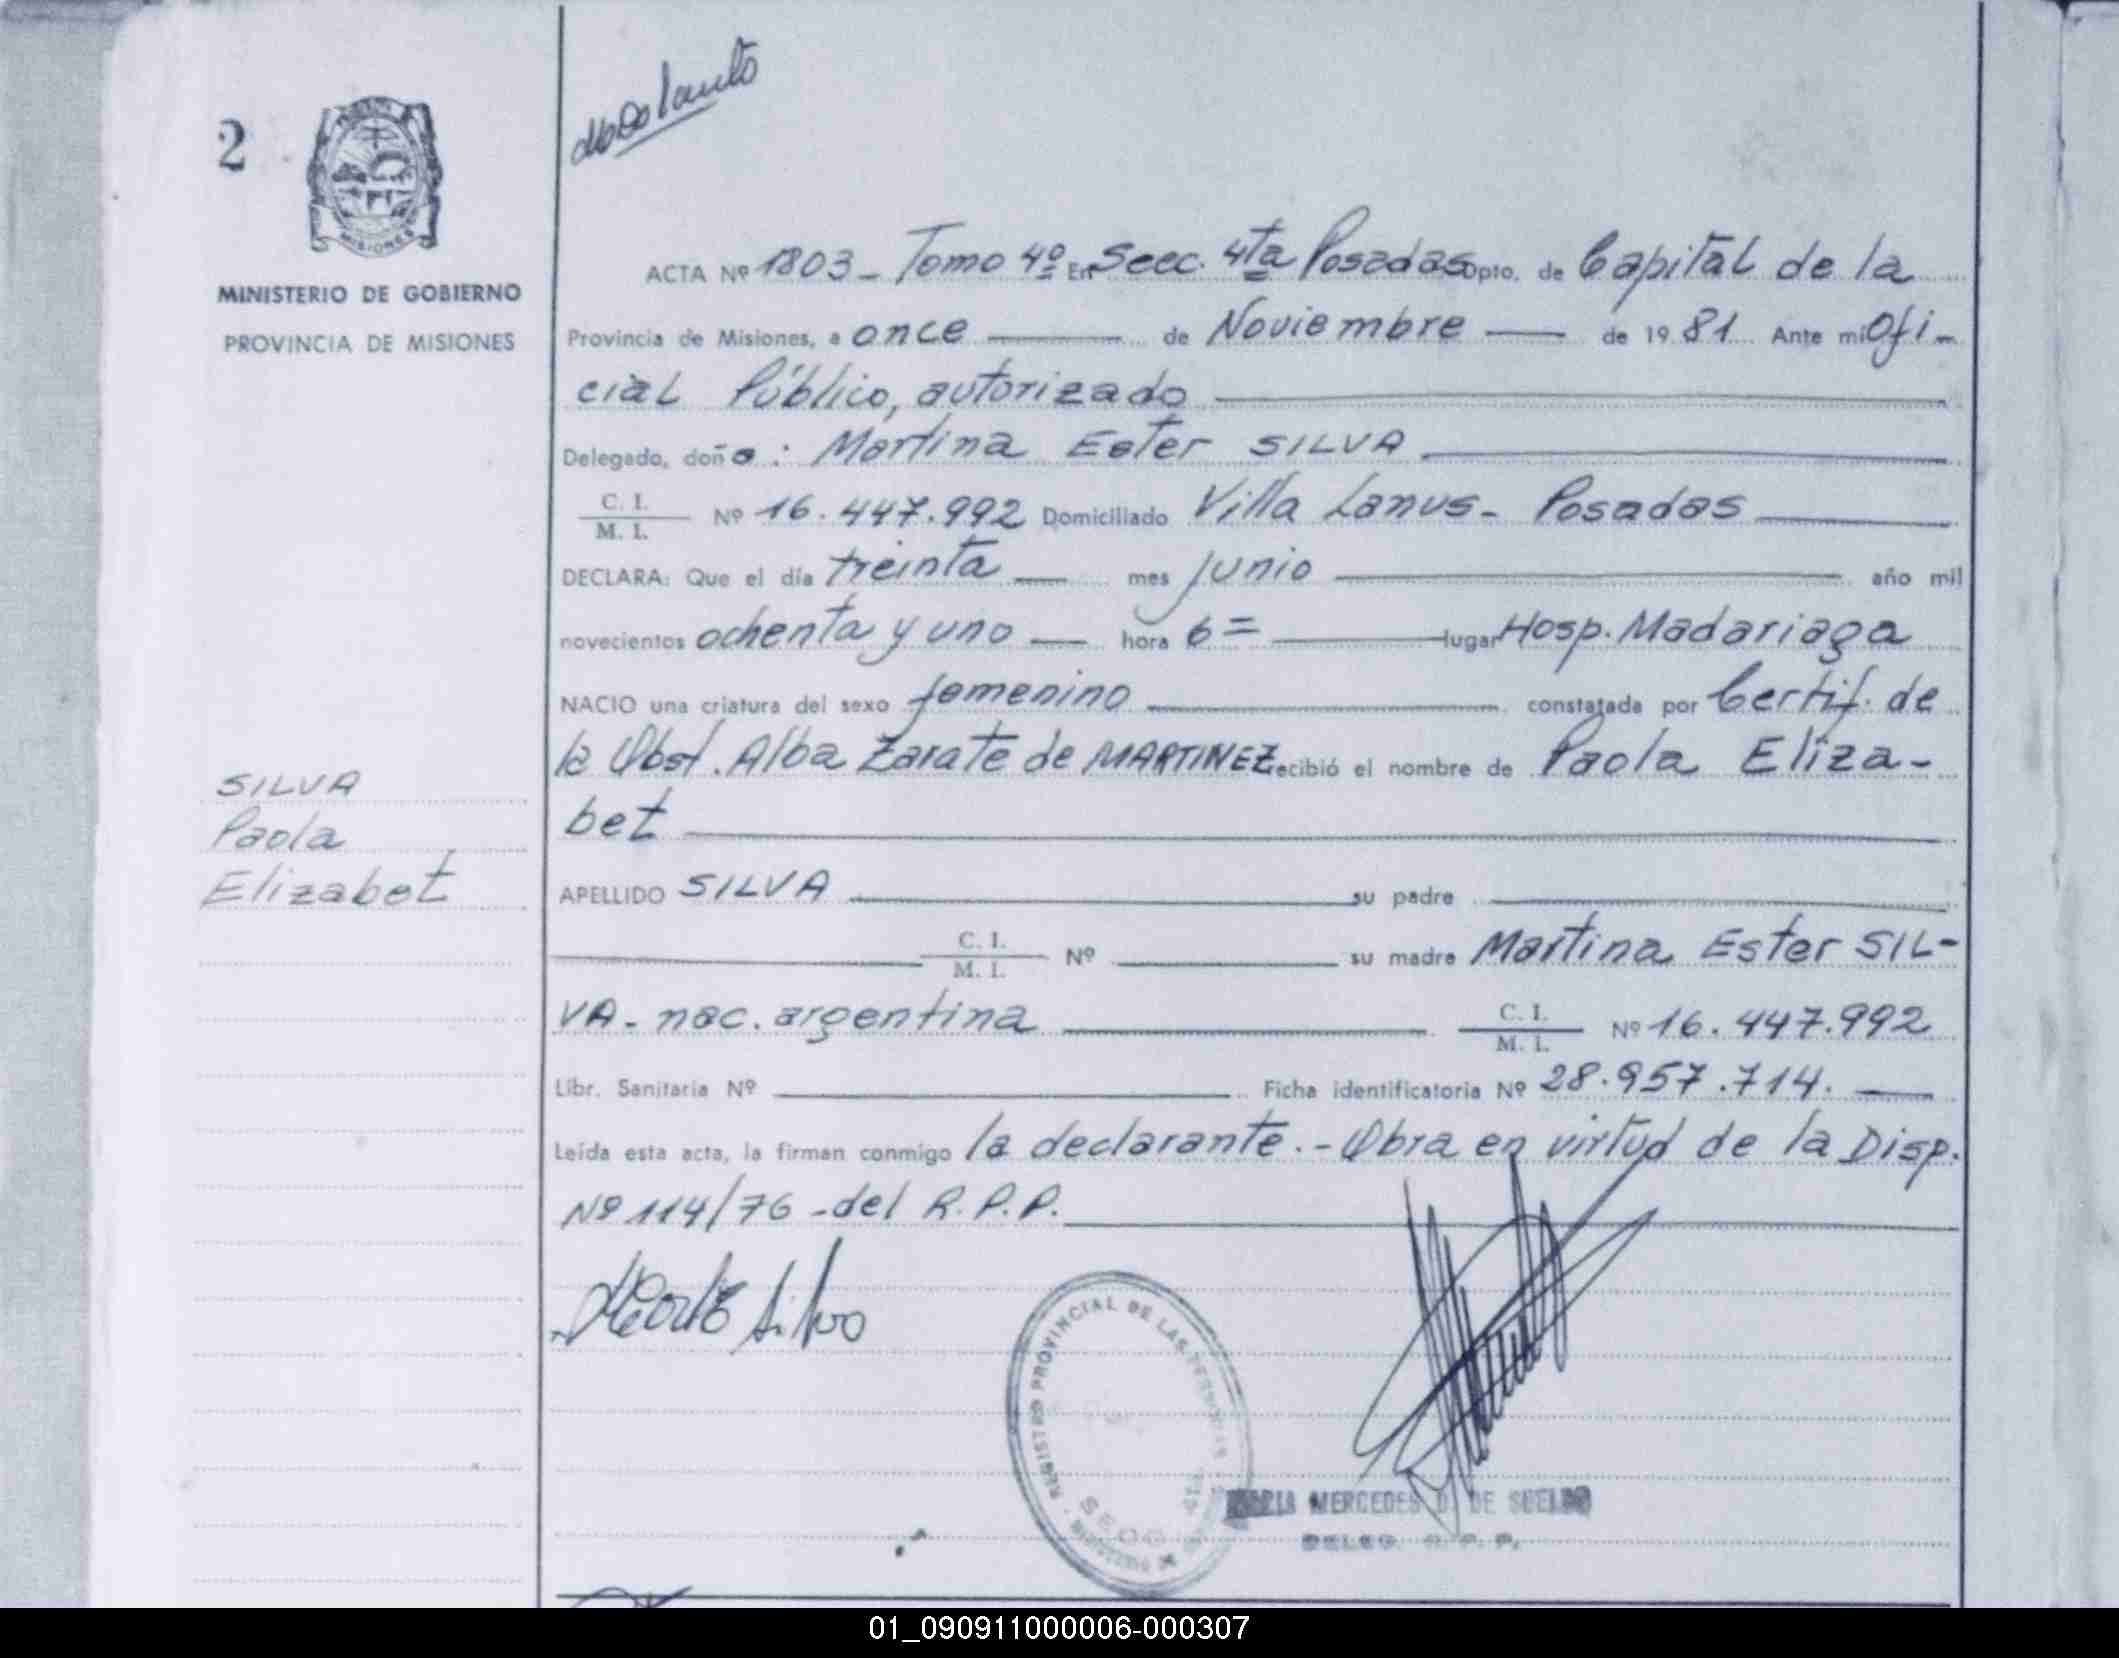 2
MISIONES
MINISTERIO DE GOBIERNO
PROVINCIA DE MISIONES
ACTA Nº 1803 - Tomo 4º En Secc. 4ta Posadas Dpto. de Capital de la
Provincia de Misiones, a once de Noviembre de 1981 Ante mi Ofi-
cial Público, autorizado
Delegado, doña: Martina Ester SILVA
C. I.
M. I. Nº 16.447.992 Domiciliado Villa Lanus - Posadas
DECLARA: Que el día treinta mes junio año mil
novecientos ochenta y uno hora 6= lugar Hosp. Madariaga
NACIO una criatura del sexo femenino constatada por Certif. de
la Obst. Alba Zarate de MARTINEZ recibió el nombre de Paola Eliza-
bet
SILVA
Paola
Elizabet
APELLIDO SILVA su padre
C. I.
M. I. Nº su madre Martina Ester SIL-
VA - nac. argentina C. I.
M. I. Nº 16.447.992
Libr. Sanitaria Nº Ficha identificatoria Nº 28.957.714.
Leída esta acta, la firman conmigo la declarante. - Obra en virtud de la Disp.
Nº 114/76 - del R.P.P.
Silva
REGISTRO PROVINCIAL DE LAS PERSONAS
MARIA MERCEDES D. DE SUELDO
DELEG. R. P. P.
01_090911000006-000307